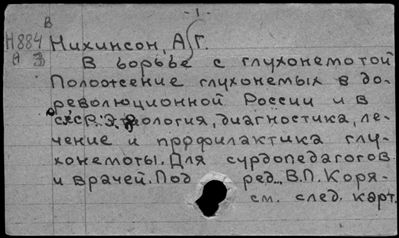 -1-
В
Н884 Нихинсон, А. Г.
А 3 В борьбе с глухонемотой
Положение глухонемых в до-
революционной России и в
СССР. Этиология, диагностика, ле-
чение и профилактика глу-
хонемоты. Для сурдопедагогов
и врачей. Под ред. В.П. Коря-
см. след. карт.